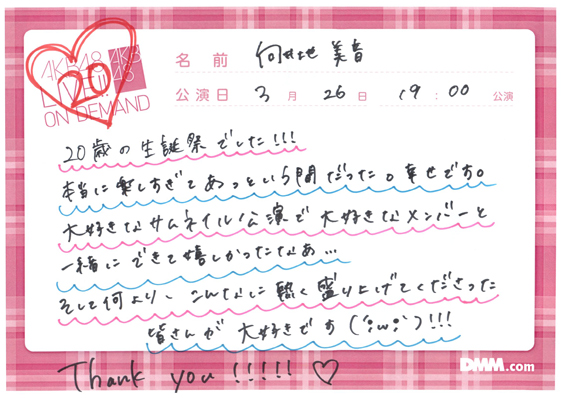 AKB48
AKB
48
LIVE!!
ON DEMAND
20
名前 向井地 美音
公演日 3月 26日 19:00 公演
20歳の生誕祭でした!!!
本当に楽しすぎてあっという間だった。幸せです。
大好きなサムネイル公演で大好きなメンバーと
一緒にできて嬉しかったなあ...
そして何より、こんなに熱く盛り上げてくださった
皆さんが大好きです(´;ω;`)!!!
Thank you!!!!! ♡
DMM.com